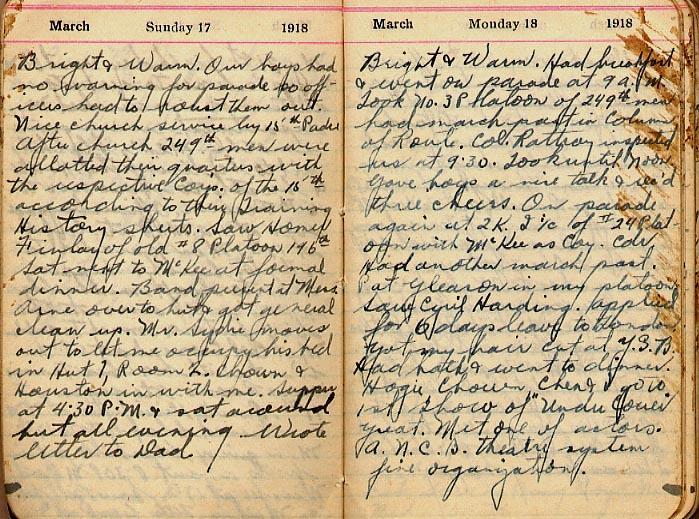 March Sunday 17 1918
Bright & Warm. Our boys had
no warning for parade so off-
icers had to roust them out.
Nice church service by 15th Padre
After church 249th men were
allotted their quarters with
the respective Coys. of the 15th
according to their Training
History sheets. Saw Homer
Finlay of old #8 Platoon 196th
Sat next to McKee at formal
dinner. Band present at Mess
Came over to hut & got general
clean up. Mr. moves
out to let me occupy his bed
in Hut 1, Room 2. Chown &
Houston in with me. Supper
at 4:30 P.M. & sat around
hut all evening Wrote
letter to Dad
March Monday 18 1918
Bright & Warm. Had breakfast
& went on parade at 9 A.M.
Took No. 38 Platoon of 249th men
had march past in Column
of Route. Col. inspected
us at 9:30. Took until Noon
Gave boys a nice talk & rec'd
three cheers. On parade
again at 2K. I/c of # 24 Plat-
oon with McKee as Coy. Cdr.
Had another march past
Pat Gleason in my platoon
Saw Cyril Harding. Applied
for 6 days leave to London
Got my hair cut at
Had bath & went to dinner.
Hogie Chown & go to
show of "Under Cover"
great. Met one of actors.
A. N. C. B. theatre system
fine organization.